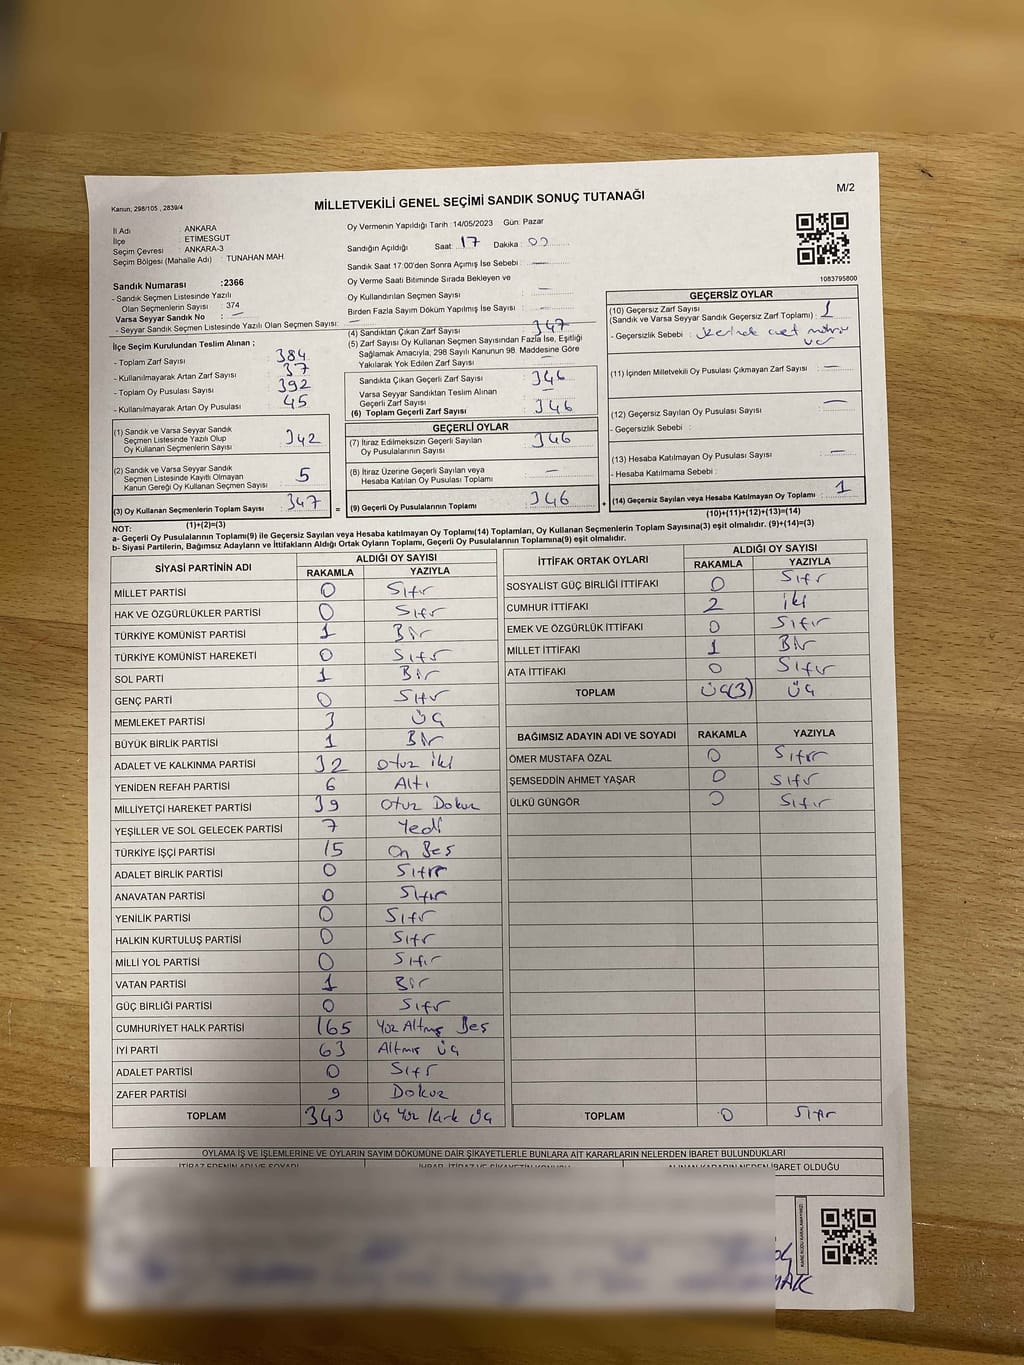 M/2
Kanun, 298/105 , 2839/4
MİLLETVEKİLİ GENEL SEÇİMİ SANDIK SONUÇ TUTANAĞI
İl Adı : ANKARA
İlçe : ETİMESGUT
Seçim Çevresi : ANKARA-3
Seçim Bölgesi (Mahalle Adı) : TUNAHAN MAH
Sandık Numarası :2366
- Sandık Seçmen Listesinde Yazılı
Olan Seçmenlerin Sayısı : 374
Varsa Seyyar Sandık No : —
- Seyyar Sandık Seçmen Listesinde Yazılı Olan Seçmen Sayısı: —
İlçe Seçim Kurulundan Teslim Alınan ;
- Toplam Zarf Sayısı : 384
- Kullanılmayarak Artan Zarf Sayısı : 37
- Toplam Oy Pusulası Sayısı : 392
- Kullanılmayarak Artan Oy Pusulası : 45
(1) Sandık ve Varsa Seyyar Sandık
Seçmen Listesinde Yazılı Olup
Oy Kullanan Seçmenlerin Sayısı : 342
(2) Sandık ve Varsa Seyyar Sandık
Seçmen Listesinde Kayıtlı Olmayan
Kanun Gereği Oy Kullanan Seçmen Sayısı : 5
(3) Oy Kullanan Seçmenlerin Toplam Sayısı : 347
Oy Vermenin Yapıldığı Tarih : 14/05/2023 Gün: Pazar
Sandığın Açıldığı Saat: 17 Dakika: 00
Sandık Saat 17:00'den Sonra Açımış İse Sebebi : —
Oy Verme Saati Bitiminde Sırada Bekleyen ve
Oy Kullandırılan Seçmen Sayısı : —
Birden Fazla Sayım Döküm Yapılmış İse Sayısı : —
(4) Sandıktan Çıkan Zarf Sayısı : 347
(5) Zarf Sayısı Oy Kullanan Seçmen Sayısından Fazla İse, Eşitliği
Sağlamak Amacıyla, 298 Sayılı Kanunun 98. Maddesine Göre
Yakılarak Yok Edilen Zarf Sayısı : —
Sandıkta Çıkan Geçerli Zarf Sayısı : 346
Varsa Seyyar Sandıktan Teslim Alınan
Geçerli Zarf Sayısı : —
(6) Toplam Geçerli Zarf Sayısı : 346
GEÇERLİ OYLAR
(7) İtiraz Edilmeksizin Geçerli Sayılan
Oy Pusulalarının Sayısı : 346
(8) İtiraz Üzerine Geçerli Sayılan veya
Hesaba Katılan Oy Pusulası Toplamı : —
= (9) Geçerli Oy Pusulalarının Toplamı : 346 +
1083795800
GEÇERSİZ OYLAR
(10) Geçersiz Zarf Sayısı
(Sandık ve Varsa Seyyar Sandık Geçersiz Zarf Toplamı) : 1
- Geçersizlik Sebebi : üzerinde evet mührü
var
(11) İçinden Milletvekili Oy Pusulası Çıkmayan Zarf Sayısı : —
(12) Geçersiz Sayılan Oy Pusulası Sayısı : —
- Geçersizlik Sebebi :
(13) Hesaba Katılmayan Oy Pusulası Sayısı : —
- Hesaba Katılmama Sebebi :
(14) Geçersiz Sayılan veya Hesaba Katılmayan Oy Toplamı : 1
NOT: (1)+(2)=(3) (10)+(11)+(12)+(13)=(14)
a- Geçerli Oy Pusulalarının Toplamı(9) ile Geçersiz Sayılan veya Hesaba katılmayan Oy Toplamı(14) Toplamları, Oy Kullanan Seçmenlerin Toplam Sayısına(3) eşit olmalıdır. (9)+(14)=(3)
b- Siyasi Partilerin, Bağımsız Adayların ve İttifakların Aldığı Ortak Oyların Toplamı, Geçerli Oy Pusulalarının Toplamına(9) eşit olmalıdır.
SİYASİ PARTİNİN ADI ALDIĞI OY SAYISI
RAKAMLA YAZIYLA
MİLLET PARTİSİ 0 Sıfır
HAK VE ÖZGÜRLÜKLER PARTİSİ 0 Sıfır
TÜRKİYE KOMÜNİST PARTİSİ 1 Bir
TÜRKİYE KOMÜNİST HAREKETİ 0 Sıfır
SOL PARTİ 1 Bir
GENÇ PARTİ 0 Sıfır
MEMLEKET PARTİSİ 3 üç
BÜYÜK BİRLİK PARTİSİ 1 Bir
ADALET VE KALKINMA PARTİSİ 32 otuz iki
YENİDEN REFAH PARTİSİ 6 Altı
MİLLİYETÇİ HAREKET PARTİSİ 39 Otuz Dokuz
YEŞİLLER VE SOL GELECEK PARTİSİ 7 Yedi
TÜRKİYE İŞÇİ PARTİSİ 15 On Beş
ADALET BİRLİK PARTİSİ 0 Sıfır
ANAVATAN PARTİSİ 0 Sıfır
YENİLİK PARTİSİ 0 Sıfır
HALKIN KURTULUŞ PARTİSİ 0 Sıfır
MİLLİ YOL PARTİSİ 0 Sıfır
VATAN PARTİSİ 1 Bir
GÜÇ BİRLİĞİ PARTİSİ 0 Sıfır
CUMHURİYET HALK PARTİSİ 165 Yüz Altmış Beş
İYİ PARTİ 63 Altmış üç
ADALET PARTİSİ 0 Sıfır
ZAFER PARTİSİ 9 Dokuz
TOPLAM 343 üç Yüz Kırk üç
İTTİFAK ORTAK OYLARI ALDIĞI OY SAYISI
RAKAMLA YAZIYLA
SOSYALİST GÜÇ BİRLİĞİ İTTİFAKI 0 Sıfır
CUMHUR İTTİFAKI 2 iki
EMEK VE ÖZGÜRLÜK İTTİFAKI 0 Sıfır
MİLLET İTTİFAKI 1 Bir
ATA İTTİFAKI 0 Sıfır
TOPLAM üç(3) üç
BAĞIMSIZ ADAYIN ADI VE SOYADI RAKAMLA YAZIYLA
ÖMER MUSTAFA ÖZAL 0 Sıfır
ŞEMSEDDİN AHMET YAŞAR 0 Sıfır
ÜLKÜ GÜNGÖR 0 Sıfır
TOPLAM 0 Sıfır
OYLAMA İŞ VE İŞLEMLERİNE VE OYLARIN SAYIM DÖKÜMÜNE DAİR ŞİKAYETLERLE BUNLARA AİT KARARLARIN NELERDEN İBARET BULUNDUKLARI
İTİRAZ EDENİN ADI VE SOYADI İHBAR, İTİRAZ VE ŞİKAYETİN KONUSU ALINAN KARARIN NEDEN İBARET OLDUĞU
KARE KODU KARALAMAYINIZ!